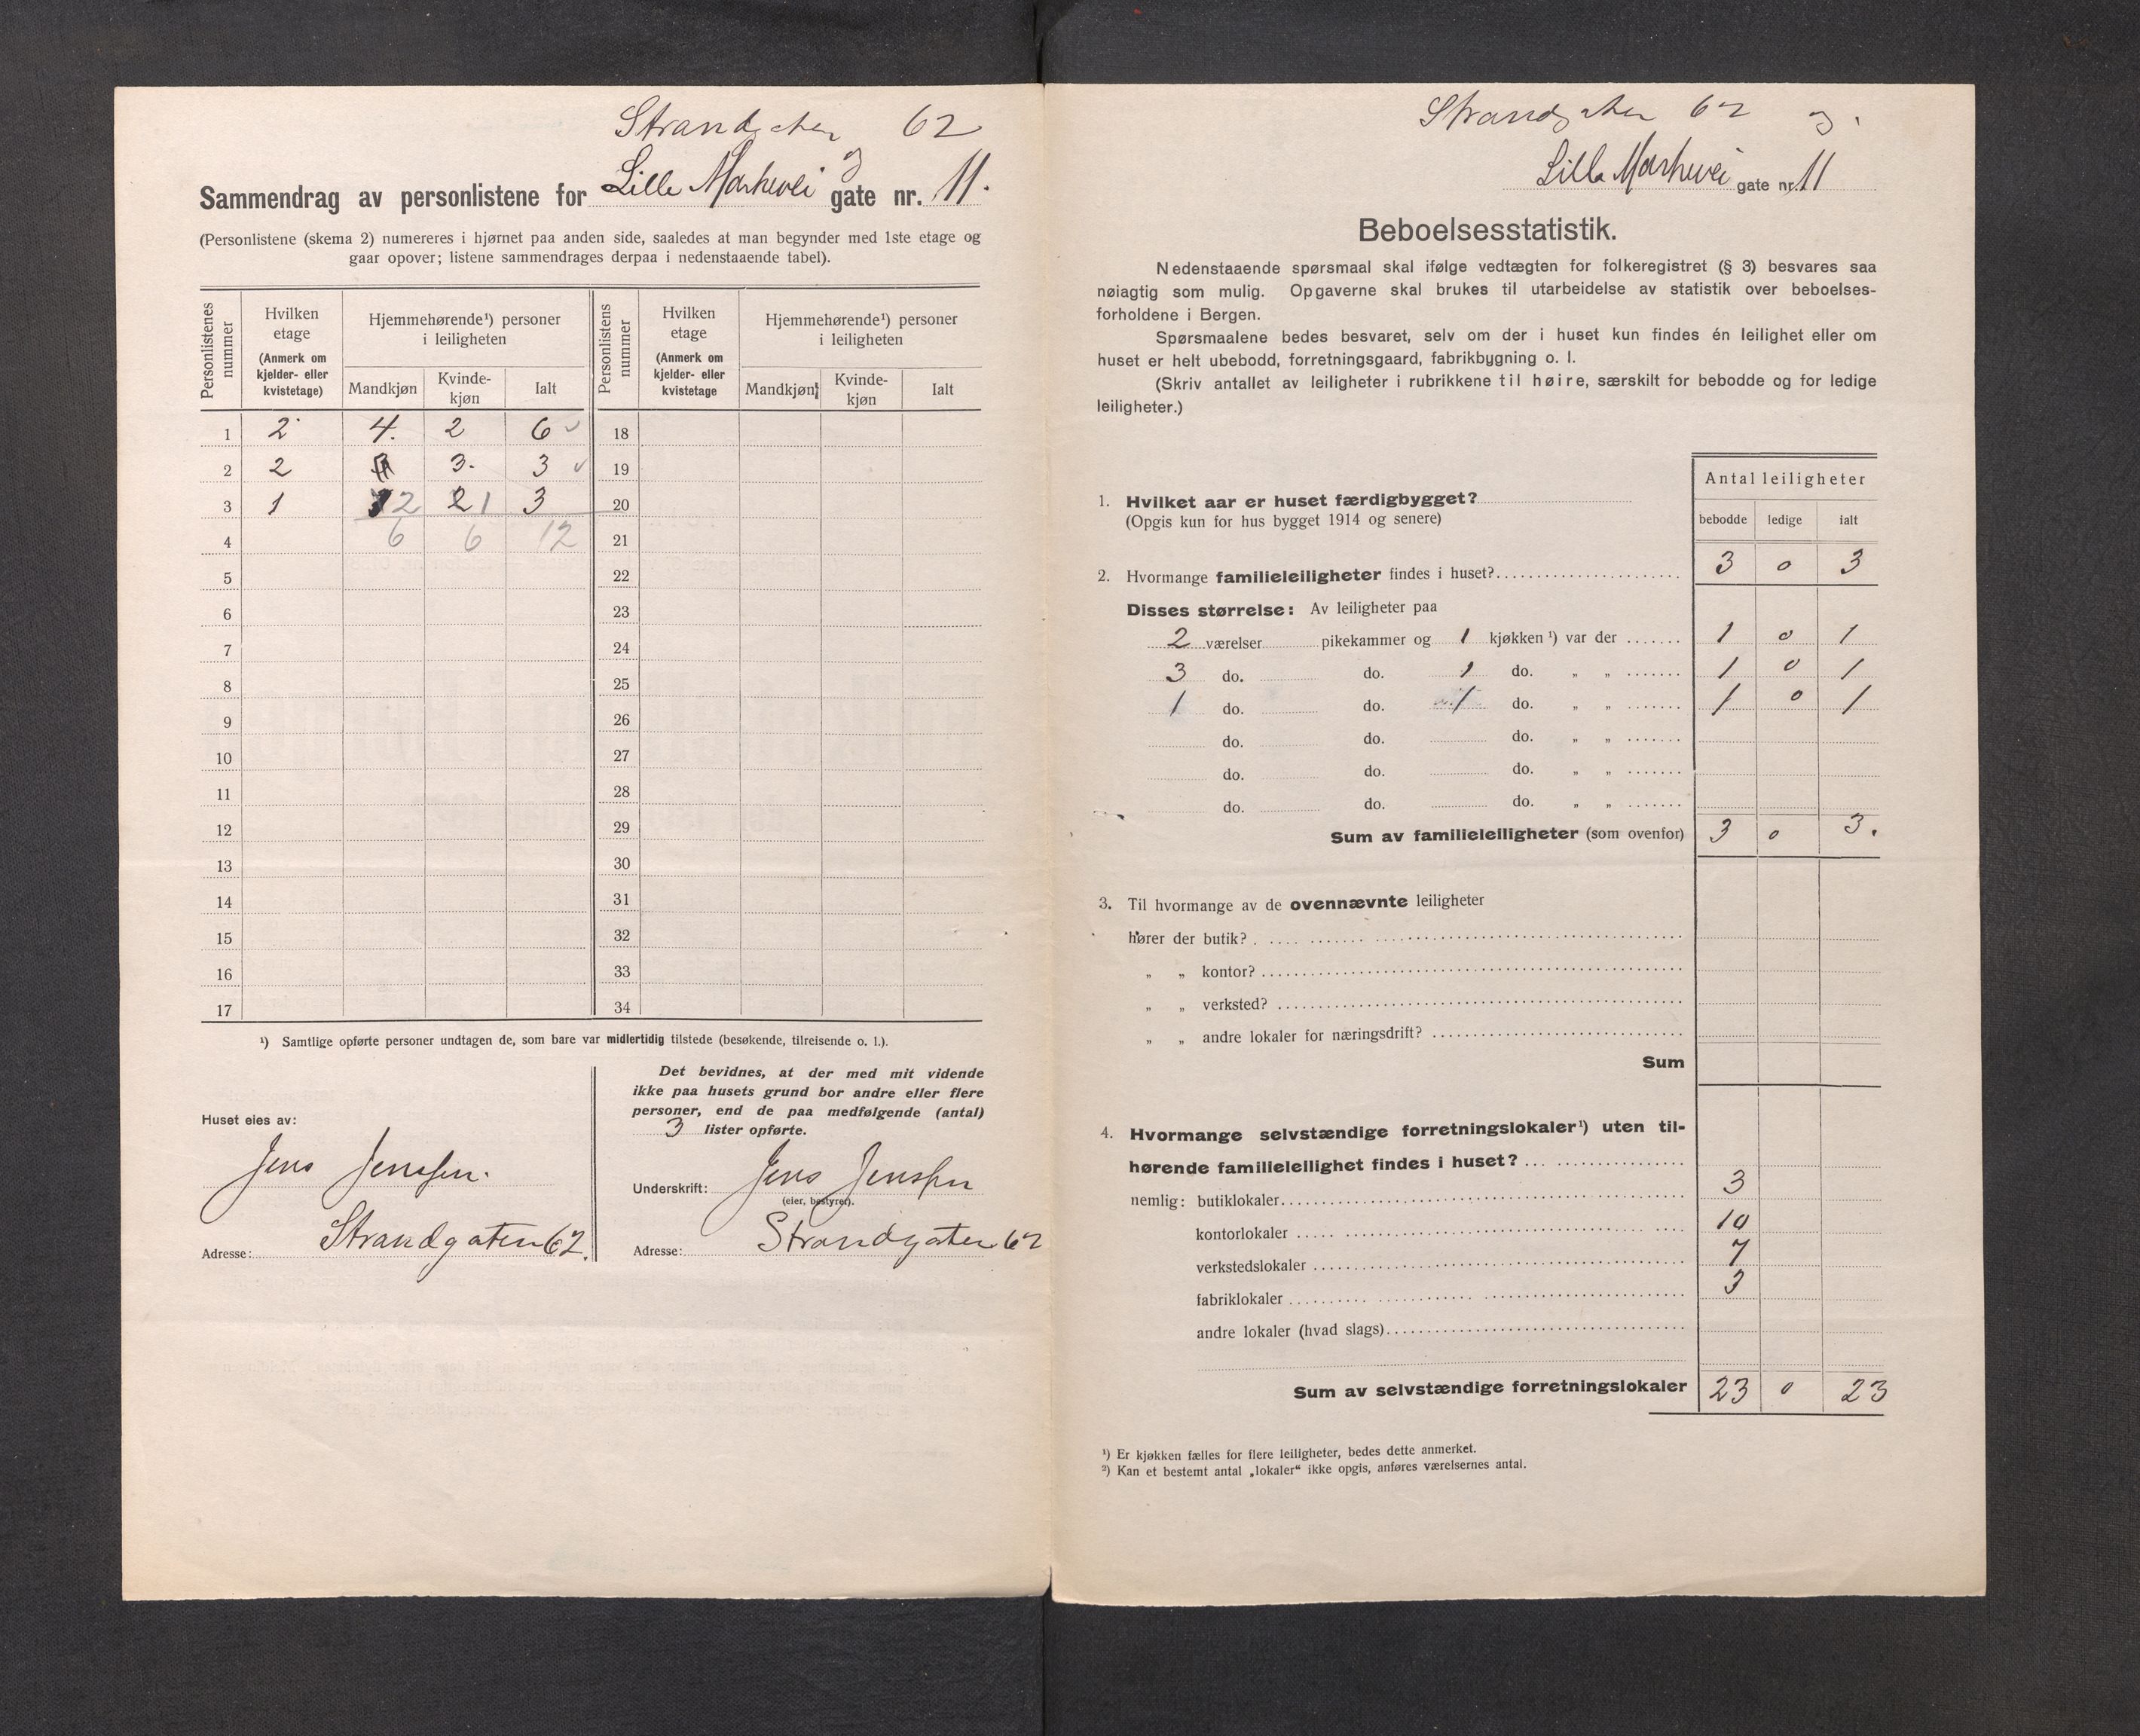 Strandgaten 62
og
Sammendrag av personlistene for Lille Markevei gate nr. 11.
(Personlistene (skema 2) numereres i hjørnet paa anden side, saaledes at man begynder med 1ste etage og
gaar opover; listene sammendrages derpaa i nedenstaaende tabel).
Personlistenes nummer
Hvilken etage (Anmerk om kjelder- eller kvistetage)
Hjemmehørende¹) personer i leiligheten
Mandkjøn Kvinde-kjøn Ialt
Personlistens nummer
Hvilken etage (Anmerk om kjelder- eller kvistetage
Hjemmehørende¹) personer i leiligheten
Mandkjøn Kvinde-kjøn Ialt
1 2 4. 2 6 18
2 2 3. 3 19
3 1 2 2 1 3 20
4 6 6 12 21
5 22
6 23
7 24
8 25
9 26
10 27
11 28
12 29
13 30
14 31
15 32
16 33
17 34
¹) Samtlige opførte personer undtagen de, som bare var midlertidig tilstede (besøkende, tilreisende o. l.).
Huset eies av:
Jens Jenssen.
Adresse: Strandgaten 62.
Det bevidnes, at der med mit vidende
ikke paa husets grund bor andre eller flere
personer, end de paa medfølgende (antal)
3 lister opførte.
Underskrift: Jens Jenssen
(eier, bestyrer).
Adresse: Strandgaten 62
Strandgaten 62 og.
Lille Markevei gate nr. 11
Beboelsesstatistik.
Nedenstaaende spørsmaal skal ifølge vedtægten for folkeregistret (§ 3) besvares saa
nøiagtig som mulig. Opgaverne skal brukes til utarbeidelse av statistik over beboelses-
forholdene i Bergen.
Spørsmaalene bedes besvaret, selv om der i huset kun findes én leilighet eller om
huset er helt ubebodd, forretningsgaard, fabrikbygning o. l.
(Skriv antallet av leiligheter i rubrikkene til høire, særskilt for bebodde og for ledige
leiligheter.)
Antal leiligheter
bebodde ledige ialt
1. Hvilket aar er huset færdigbygget?
(Opgis kun for hus bygget 1914 og senere)
2. Hvormange familieleiligheter findes i huset? 3 0 3
Disses størrelse: Av leiligheter paa
2 værelser pikekammer og 1 kjøkken ¹) var der 1 0 1
3 do. do. 1 do. „ „ 1 0 1
1 do. do. 1 do. „ „ 1 0 1
do. do. do. „ „
do. do. do. „ „
do. do. do. „ „
Sum av familieleiligheter (som ovenfor) 3 0 3.
3. Til hvormange av de ovennævnte leiligheter
hører der butik?
„ „ kontor?
„ „ verksted?
„ „ andre lokaler for næringsdrift?
Sum
4. Hvormange selvstændige forretningslokaler¹) uten til-
hørende familieleilighet findes i huset?
nemlig: butiklokaler 3
kontorlokaler 10
verkstedslokaler 7
fabriklokaler 3
andre lokaler (hvad slags)
Sum av selvstændige forretningslokaler 23 0 23
¹) Er kjøkken fælles for flere leiligheter, bedes dette anmerket.
²) Kan et bestemt antal „lokaler“ ikke opgis, anføres værelsernes antal.